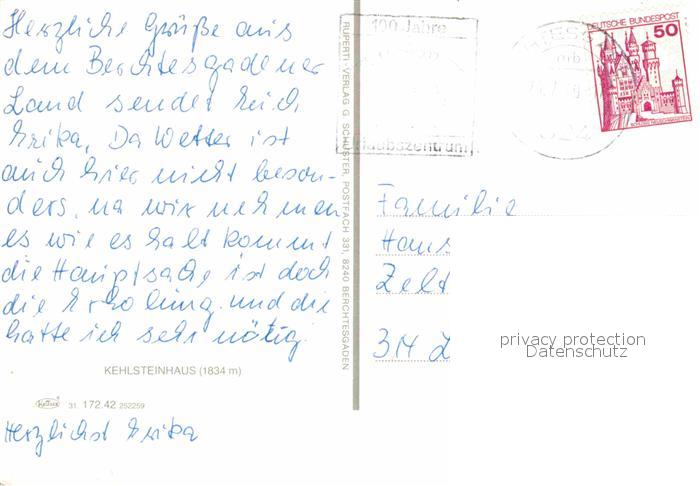 Herzliche Grüße aus
dem Berchtesgadener
Land sendet Euch
Erika. Da Wetter ist
auch hier nicht beson-
ders, na wir nehmen
es wie es halt kommt
die Hauptsache ist doch
die Erholung und die
hatte ich sehr nötig.
KEHLSTEINHAUS (1834 m)
31. 172.42 252259
Herzlichst Erika
RUPERTI-VERLAG G. SCHUSTER, POSTFACH 331, 8240 BERCHTESGADEN
100 Jahre
Urlaubszentrum
DEUTSCHE BUNDESPOST
50
SCHLOSS NEUSCHWANSTEIN
Familie
Hans
Zelt
privacy protection
Datenschutz